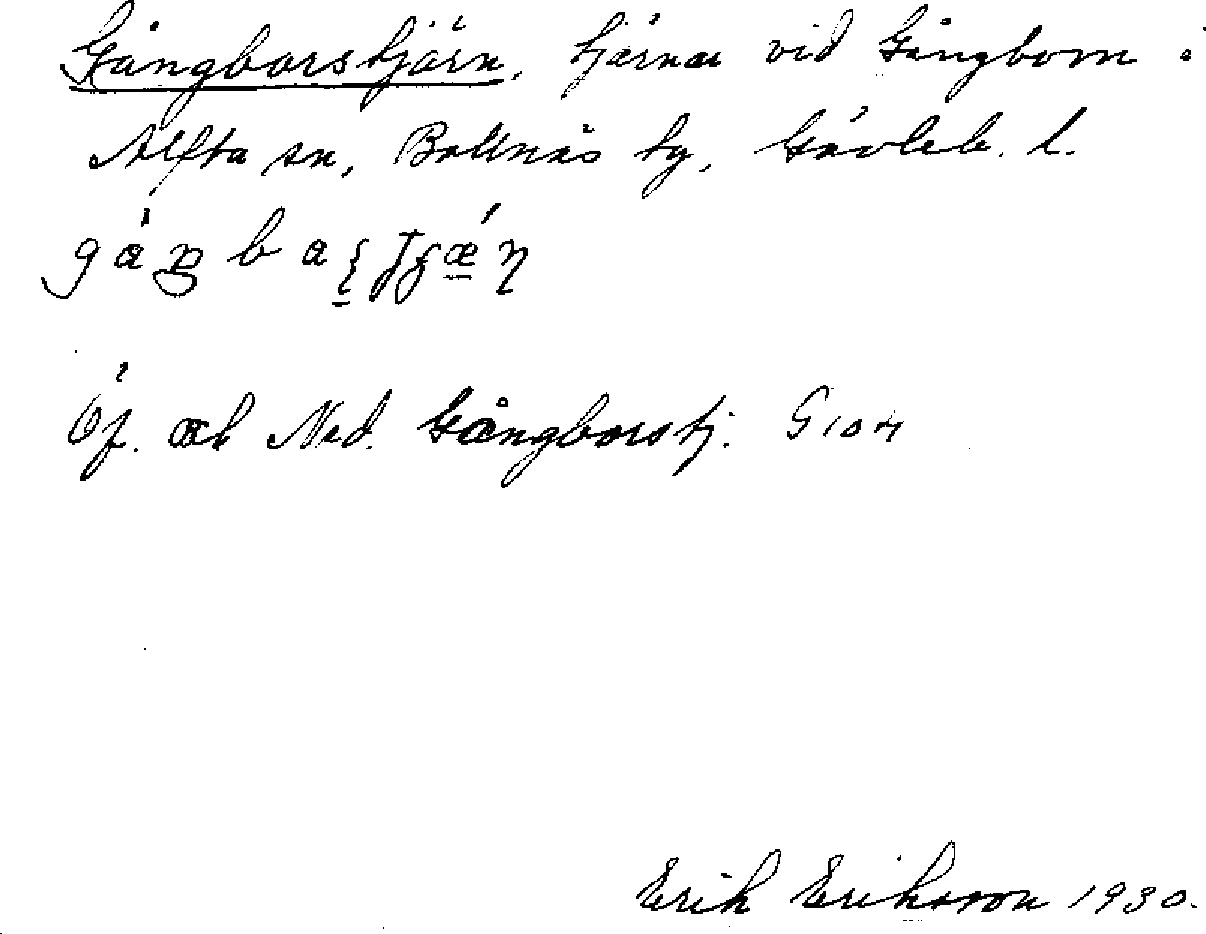 Gångborstjärn, tjärnar vid Gångborn i
Alfta sn, Bollnäs tg, Gävleb. l.
Öf. och Ned. Gångborstj. G 104
Erik Eriksson 1930.